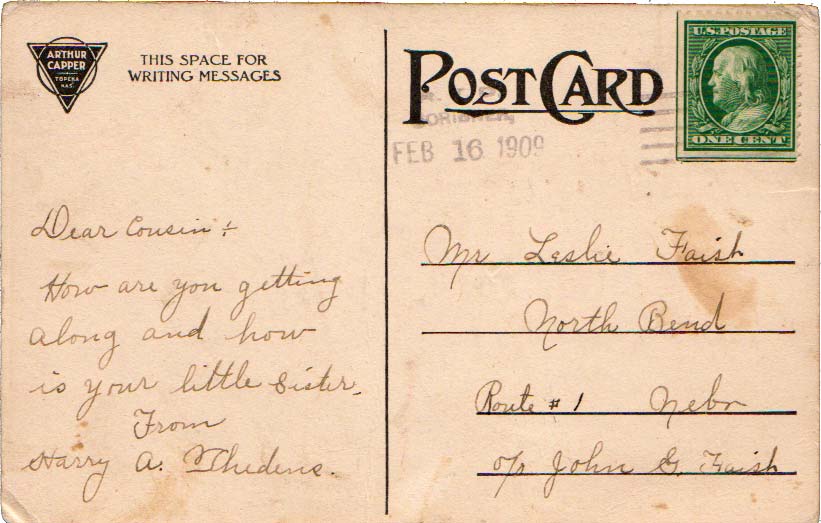 ARTHUR
CAPPER
TOPEKA
KAS.
THIS SPACE FOR
WRITING MESSAGES
POST CARD
U.S. POSTAGE
ONE CENT
FEB 16 1909
Dear Cousin:
How are you getting
along and how
is your little sister.
From
Harry A. Thedens.
Mr Leslie Faish
North Bend
Route #1 Nebr
c/o John G. Faish